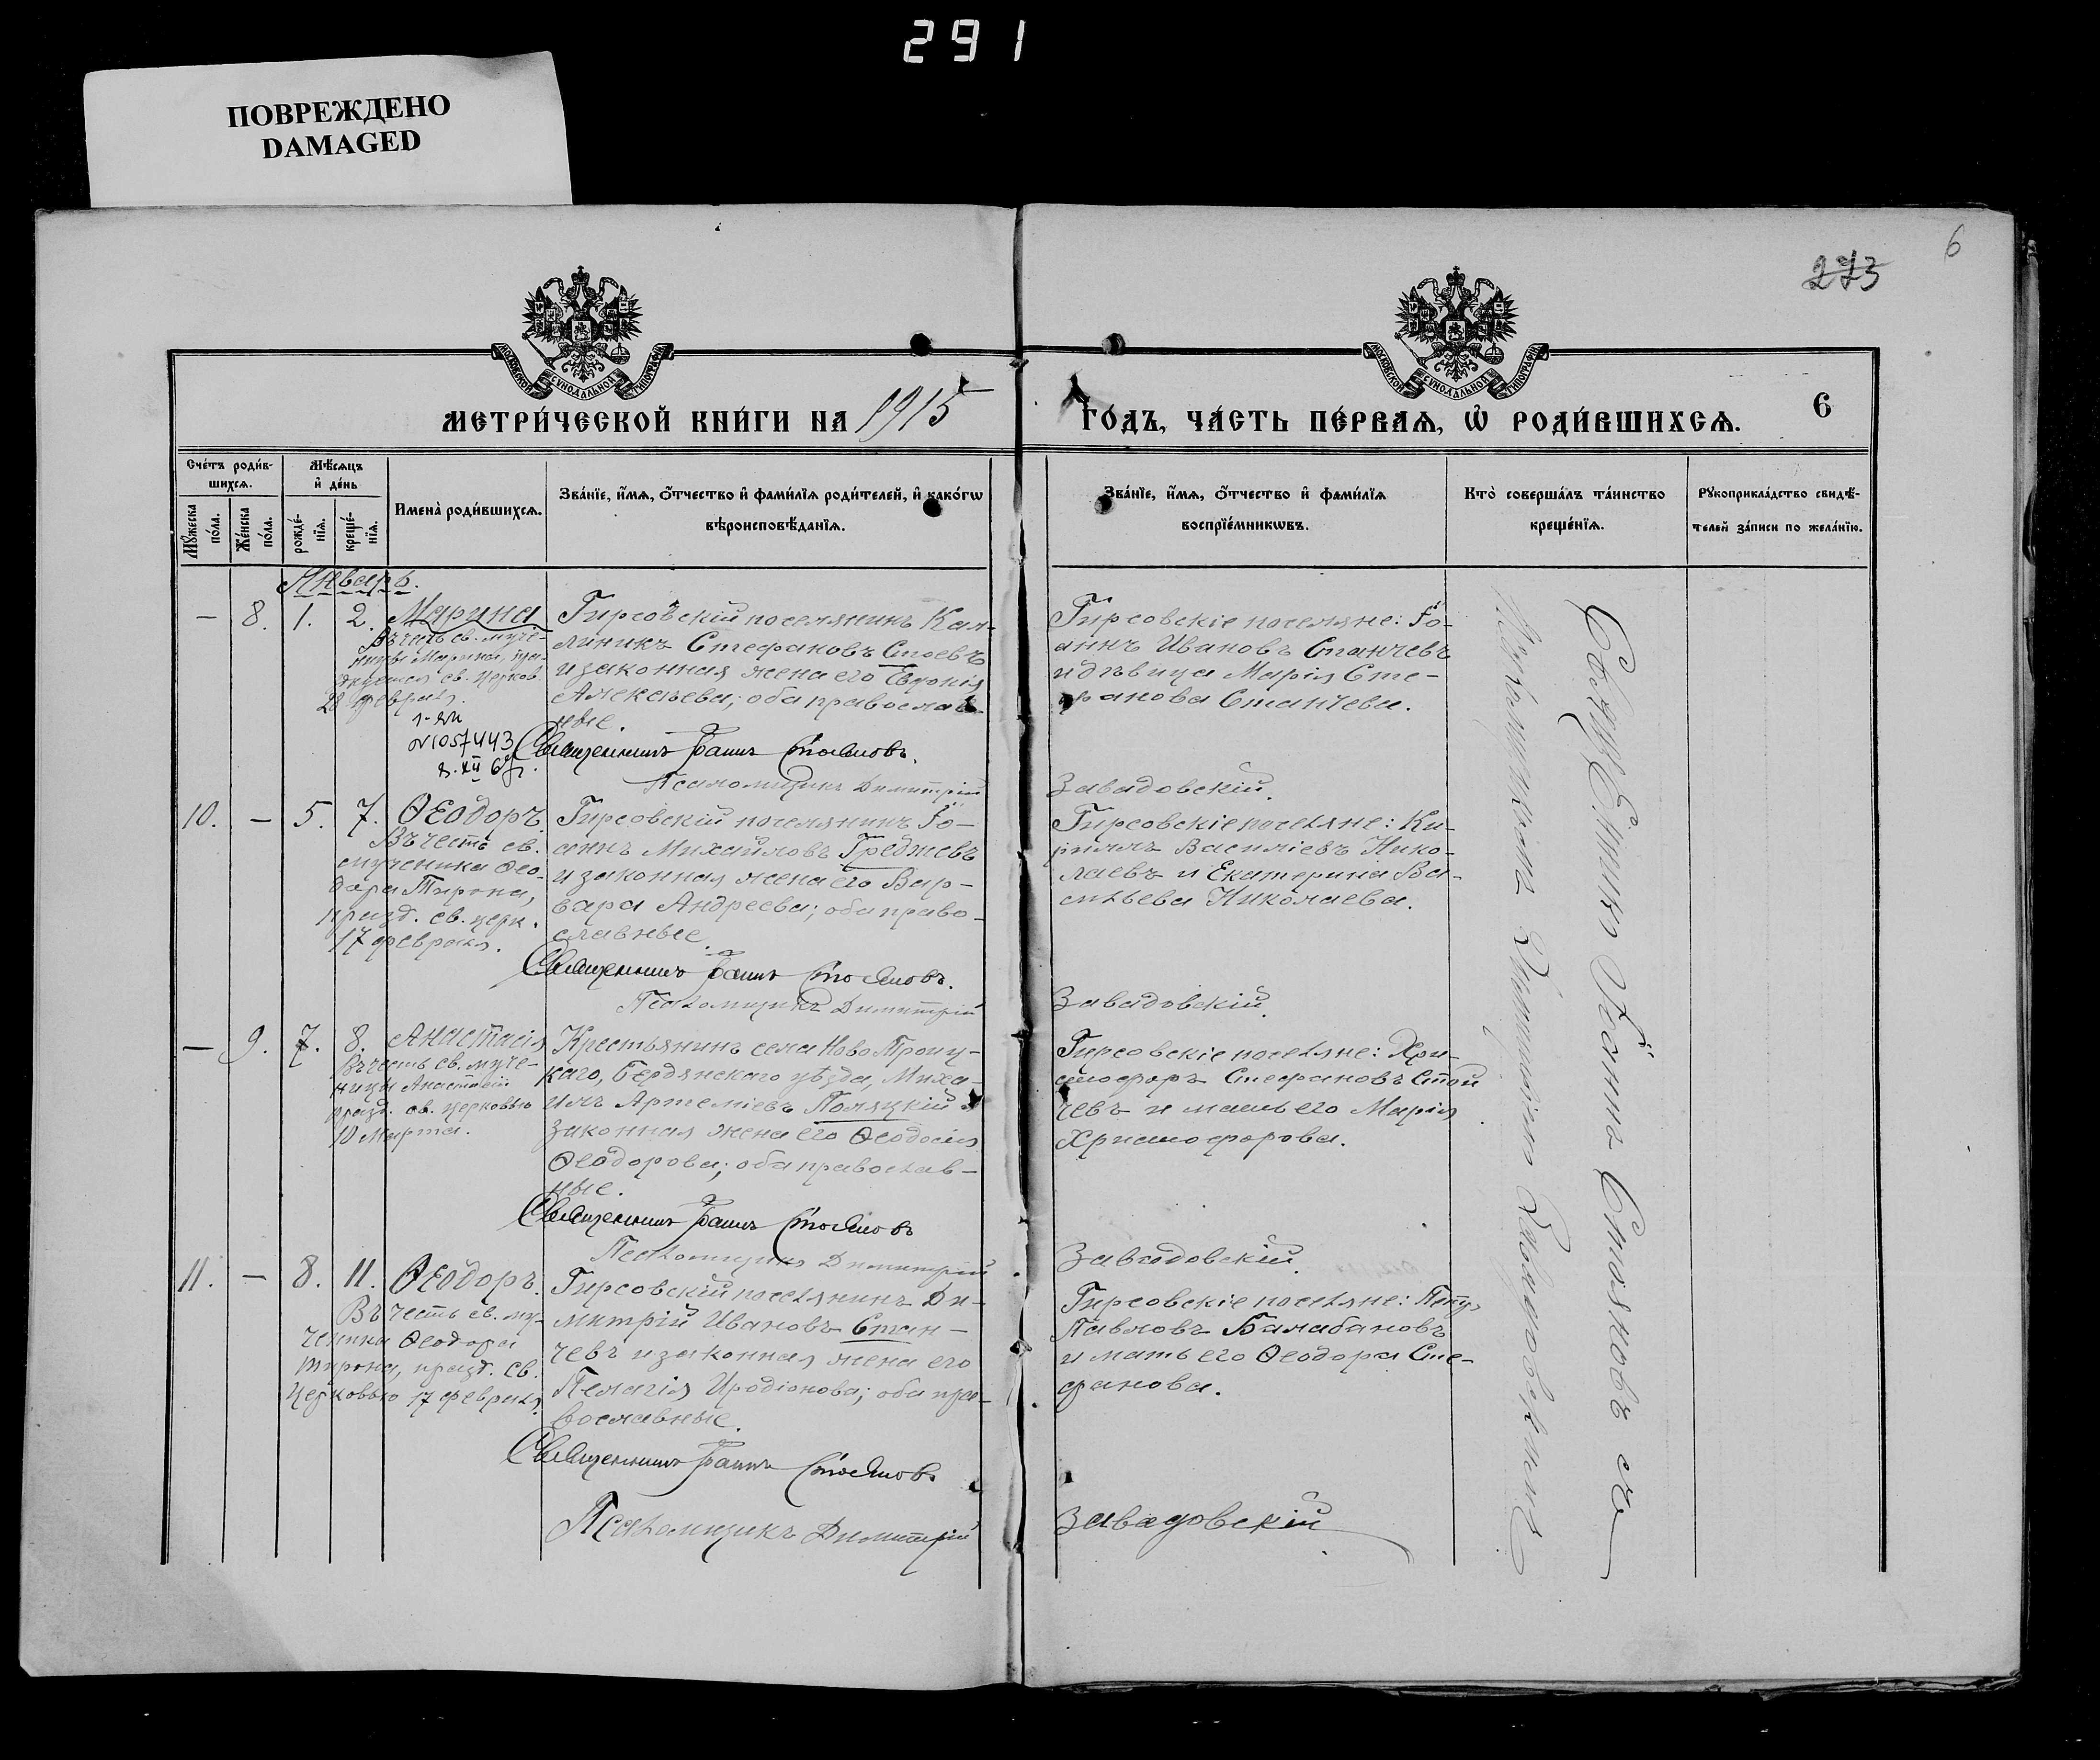 291
ПОВРЕЖДЕНО
DAMAGED
6
273
МОСКОВСКОЙ СѴНОДАЛЬНОЙ ТИПОГРАФІИ
МОСКОВСКОЙ СѴНОДАЛЬНОЙ ТИПОГРАФІИ
МЕТРИ́ЧЕСКОЙ КНИ́ГИ НА 1915
ГО́ДЪ, ЧА́СТЬ ПЕ́РВАѦ, Ѡ҆ РОДИ́ВШИХСѦ.
6
Сче́тъ роди́в-
шихсѧ.
Мꙋ́жеска
по́ла.
Же́нска
по́ла.
Мѣ́сѧцъ
и҆ де́нь
рожде́-
нїѧ.
креще́-
нїѧ.
Имена̀ роди́вшихсѧ.
Зва́нїе, и҆́мѧ, ѻ҆́тчество и҆ фами́лїѧ роди́телей, и҆ како́гѡ
вѣроисповѣ́данїѧ.
Зва́нїе, и҆́мѧ, ѻ҆́тчество и҆ фами́лїѧ
воспрїе́мникѡвъ.
Кто̀ соверша́лъ та́инство
креще́нїѧ.
Рꙋкоприкла́дство свидѣ́-
телей за́писи по жела́нїю.
Январь.
— 8. 1. 2. Марина
Въ честь св. муче-
ницы Марины, пра-
зднуемой св. Церков.
28 февраля.
1-ЯЛ
№1057443
8. XII 6 г.
Гирсовскій поселянинъ Кал-
линикъ Стефановъ Стоевъ
и законная жена его Евдокія
Алексѣева; оба православ-
ные.
Священникъ Іоаннъ Стояновъ.
Псаломщикъ Димитрій
Гирсовскіе поселяне: Іо-
аннъ Ивановъ Станчевъ
и дѣвица Марія Сте-
фанова Станчева.
Завадовскій.
10. — 5. 7. Ѳеодоръ.
Въ честь св.
мученика Ѳео-
дора Тирона,
празд. св. церк.
17 февраля.
Гирсовскій поселянинъ Іо-
аннъ Михайловъ Греджевъ
и законная жена его Вар-
вара Андреева; оба право-
славные.
Священникъ Іоаннъ Стояновъ.
Псаломщикъ Димитрій
Гирсовскіе поселяне: Ки-
риллъ Василіевъ Нико-
лаевъ и Екатерина Ва-
сильева Николаева.
Завадовскій.
— 9. 7. 8. Анастасія
Въ честь св. муче-
ницы Анастасіи
празд. св. церковью
10 Марта.
Крестьянинъ села Ново Троиц-
каго, Бердянскаго уѣзда, Миха-
илъ Артеміевъ Поляцкій и
законная жена его Ѳеодосія
Ѳеодорова; оба православ-
ные.
Священникъ Іоаннъ Стояновъ
Псаломщикъ Димитрій
Гирсовскіе поселяне: Хри-
стофоръ Стефановъ Стой
чевъ и мать его Марія
Христофорова.
Завадовскій.
11. — 8. 11. Ѳеодоръ.
Въ честь св. му-
ченика Ѳеодора
Тирона, празд. св.
церковью 17 февраля.
Гирсовскій поселянинъ Ди-
митрій Ивановъ Стан-
чевъ и законная жена его
Пелагія Иродіонова; оба пра-
вославные.
Священникъ Іоаннъ Стояновъ
Псаломщикъ Димитрій
Гирсовскіе поселяне: Петръ
Павловъ Балабановъ
и мать его Ѳеодора Сте-
фанова.
Завадовскій
Священникъ Іоаннъ Стояновъ съ
Псаломщикомъ Димитріемъ Завадовскимъ